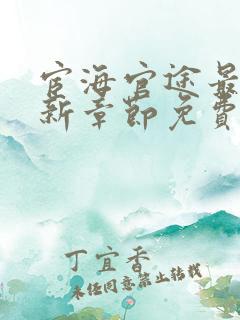 宦海官途最
新章節免費
丁宜香
未经同意禁止转载